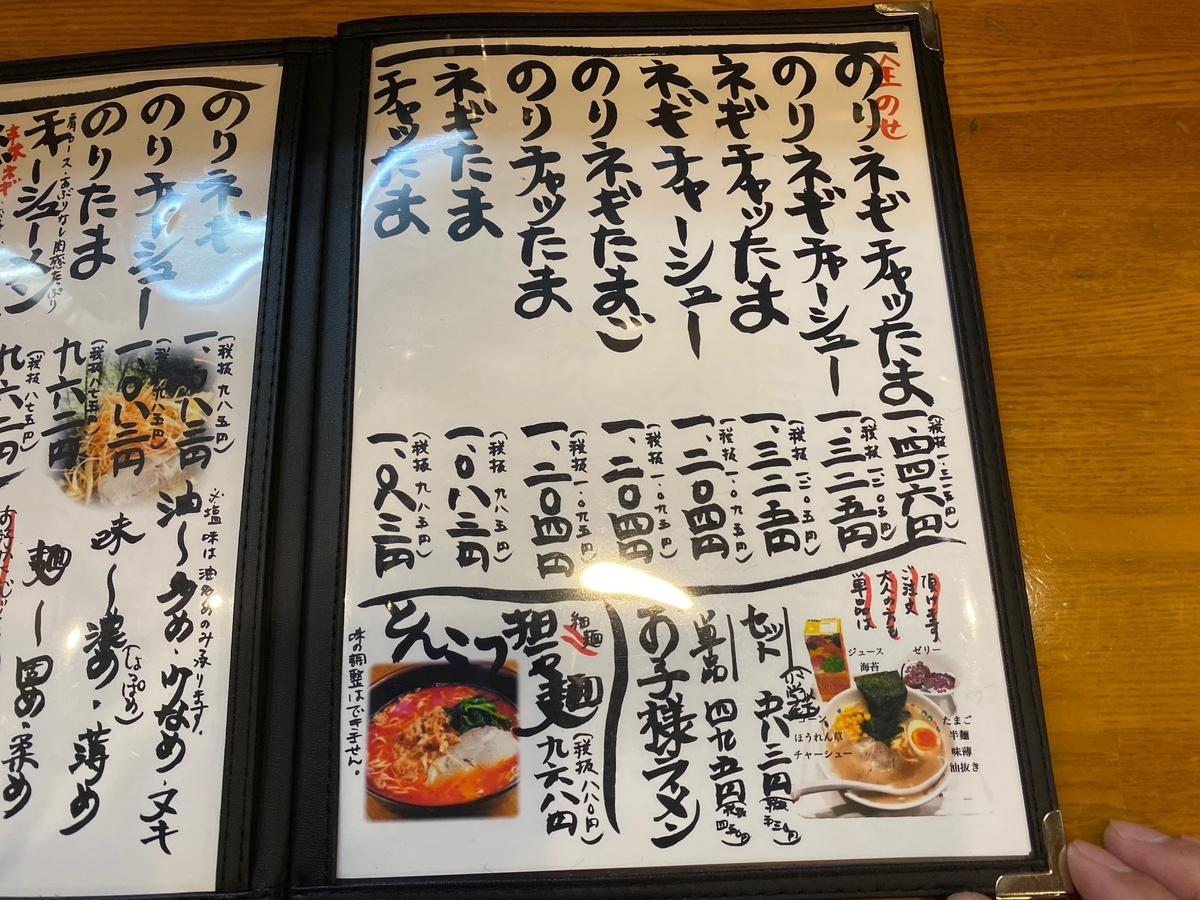 全のせ
のりネギチャッたま
一、四四六円
(税抜 一、三一五円)
のりネギチャーシュー
一、三二五円
(税抜 一、二〇五円)
ネギチャッたま
一、三二五円
(税抜 一、二〇五円)
ネギチャーシュー
一、二〇四円
(税抜 一、〇九五円)
のりネギたまご
一、二〇四円
(税抜 一、〇九五円)
のりチャッたま
一、二〇四円
(税抜 一、〇九五円)
ネギたま
一、〇八三円
(税抜 九八五円)
チャッたま
一、〇八三円
(税抜 九八五円)
単品は
大人の方も
ご注文
頂けます
ジュース
ゼリー
海苔
コーン
ほうれん草
チャーシュー
たまご
半麺
味薄
油抜き
お子様ラーメン
セット
単品 四九五円
(税抜 四五〇円)
細麺
とんこつ
担々麺
九六八円
(税抜 八八〇円)
味の調整はできません。
のりネギ
(税抜 九八五円)
のりチャーシュー
一、〇八三円
(税抜 九八五円)
のりたま
九六二円
(税抜 八七五円)
チャーシューメン
九六二円
(税抜 八七五円)
※塩味は油多めのみ承ります。
油〜多め・少なめ・ヌキ
味〜濃め・薄め
(しょっぱめ)
麺〜固め・柔め